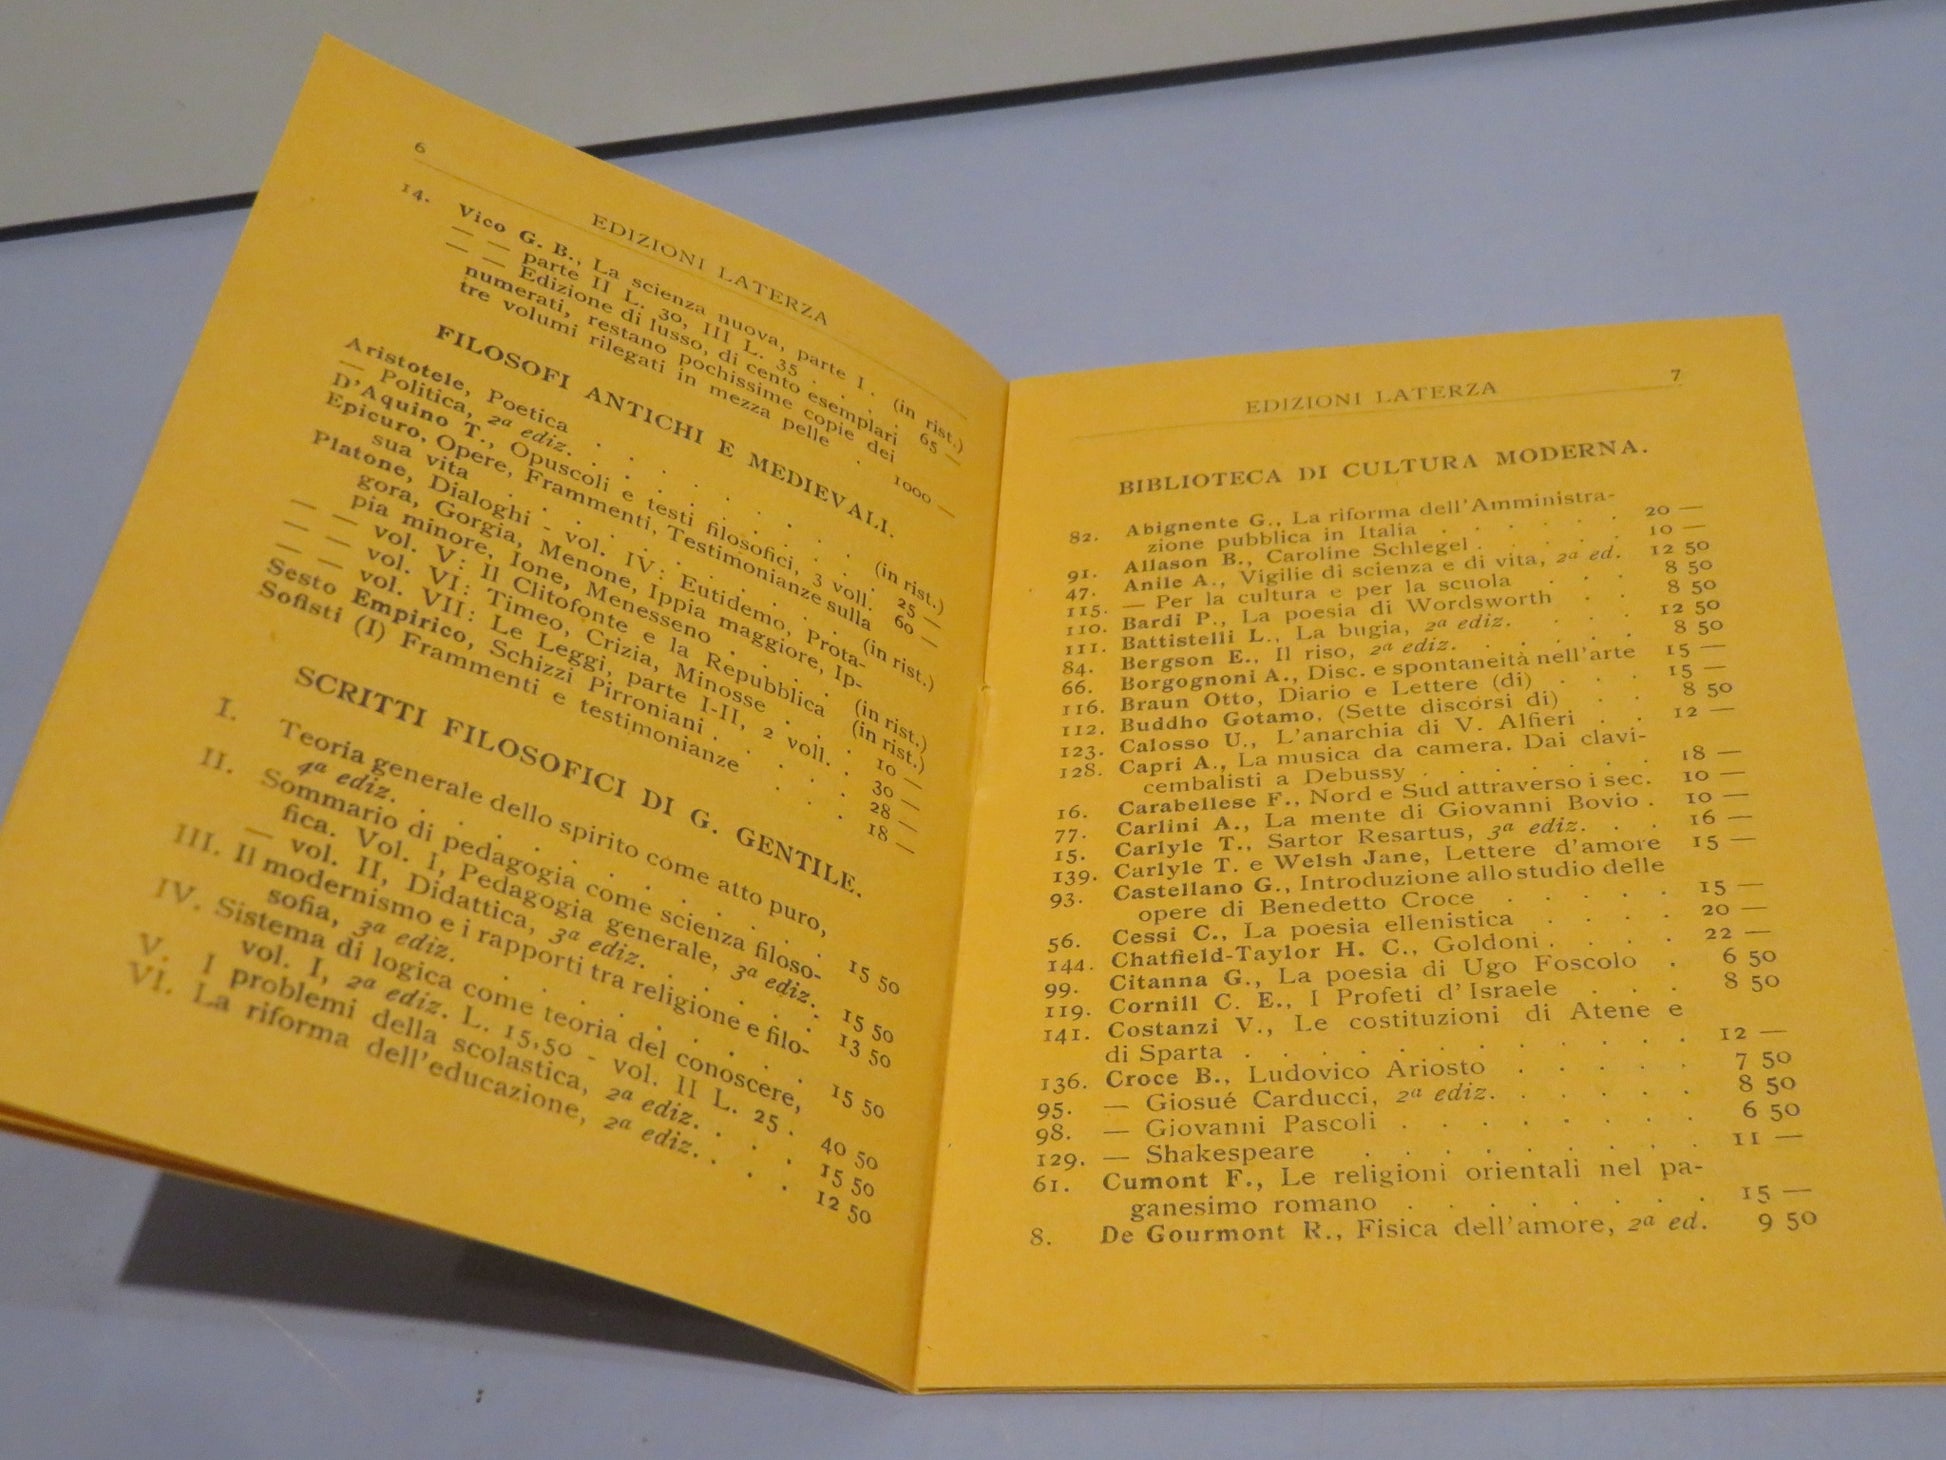 6
EDIZIONI LATERZA
14. Vico G. B., La scienza nuova, parte I . (in rist.)
— — parte II L. 30, III L. 35 . . . 65 —
— — Edizione di lusso, di cento esemplari
numerati, restano pochissime copie dei
tre volumi rilegati in mezza pelle . 1000 —
FILOSOFI ANTICHI E MEDIEVALI.
Aristotele, Poetica . . . . . . (in rist.)
— Politica, 2a ediz. . . . . . . 25 —
D'Aquino T., Opuscoli e testi filosofici, 3 voll. 60 —
Epicuro, Opere, Frammenti, Testimonianze sulla
sua vita . . . . . . . (in rist.)
Platone, Dialoghi - vol. IV: Eutidemo, Prota-
gora, Gorgia, Menone, Ippia maggiore, Ip-
pia minore, Ione, Menesseno . . . (in rist.)
— — vol. V: Il Clitofonte e la Repubblica (in rist.)
— — vol. VI: Timeo, Crizia, Minosse . . 10 —
— — vol. VII: Le Leggi, parte I-II, 2 voll. . 30 —
Sesto Empirico, Schizzi Pirroniani . . . . 28 —
Sofisti (I) Frammenti e testimonianze . . . 18 —
SCRITTI FILOSOFICI DI G. GENTILE.
I. Teoria generale dello spirito come atto puro,
4a ediz. . . . . . . . 15 50
II. Sommario di pedagogia come scienza filoso-
fica. Vol. I, Pedagogia generale, 3a ediz. 15 50
— vol. II, Didattica, 3a ediz. . . . . 13 50
III. Il modernismo e i rapporti tra religione e filo-
sofia, 3a ediz. . . . . . . 15 50
IV. Sistema di logica come teoria del conoscere,
vol. I, 2a ediz. L. 15,50 - vol. II L. 25 . 40 50
V. I problemi della scolastica, 2a ediz. . . . 15 50
VI. La riforma dell'educazione, 2a ediz. . . . 12 50
EDIZIONI LATERZA 7
BIBLIOTECA DI CULTURA MODERNA.
82. Abignente G., La riforma dell'Amministra-
zione pubblica in Italia . . . . . . 20 —
91. Allason B., Caroline Schlegel . . . . . 10 —
47. Anile A., Vigilie di scienza e di vita, 2a ed. 12 50
115. — Per la cultura e per la scuola . . . 8 50
110. Bardi P., La poesia di Wordsworth . . 8 50
111. Battistelli L., La bugia, 2a ediz. . . . 12 50
84. Bergson E., Il riso, 2a ediz. . . . . . 8 50
66. Borgognoni A., Disc. e spontaneità nell'arte 15 —
116. Braun Otto, Diario e Lettere (di) . . . 15 —
112. Buddho Gotamo, (Sette discorsi di) . . 8 50
123. Calosso U., L'anarchia di V. Alfieri . . 12 —
128. Capri A., La musica da camera. Dai clavi-
cembalisti a Debussy . . . . . . . 18 —
16. Carabellese F., Nord e Sud attraverso i sec. 10 —
77. Carlini A., La mente di Giovanni Bovio . 10 —
15. Carlyle T., Sartor Resartus, 3a ediz. . . 16 —
139. Carlyle T. e Welsh Jane, Lettere d'amore 15 —
93. Castellano G., Introduzione allo studio delle
opere di Benedetto Croce . . . . . 15 —
56. Cessi C., La poesia ellenistica . . . . 20 —
144. Chatfield-Taylor H. C., Goldoni . . . . 22 —
99. Citanna G., La poesia di Ugo Foscolo . 6 50
119. Cornill C. E., I Profeti d'Israele . . . 8 50
141. Costanzi V., Le costituzioni di Atene e
di Sparta . . . . . . . . . . . 12 —
136. Croce B., Ludovico Ariosto . . . . . 7 50
95. — Giosué Carducci, 2a ediz. . . . . . 8 50
98. — Giovanni Pascoli . . . . . . . . 6 50
129. — Shakespeare . . . . . . . . . 11 —
61. Cumont F., Le religioni orientali nel pa-
ganesimo romano . . . . . . . . 15 —
8. De Gourmont R., Fisica dell'amore, 2a ed. 9 50